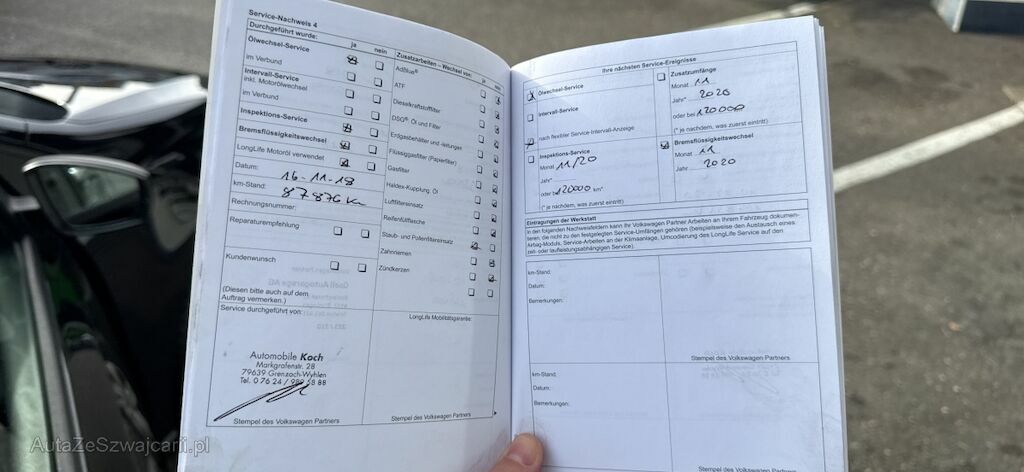 Service-Nachweis 4
Durchgeführt wurde:
ja nein
Ölwechsel-Service
im Verbund
Intervall-Service
inkl. Motorölwechsel
im Verbund
Inspektions-Service
Bremsflüssigkeitswechsel
LongLife Motoröl verwendet
Datum:
16-11-18
km-Stand:
87876 Km
Rechnungsnummer:
Reparaturempfehlung
Kundenwunsch
(Diesen bitte auch auf dem
Auftrag vermerken.)
Service durchgeführt von:
Automobile Koch
Markgrafenstr. 28
79639 Grenzach-Wyhlen
Tel. 0 76 24 /
Stempel des Volkswagen Partners
Zusatzarbeiten – Wechsel von:
AdBlue®
ATF
Dieselkraftstofffilter
DSG®: Öl und Filter
Erdgasbehälter und -leitungen
Flüssiggasfilter (Papierfilter)
Gasfilter
Haldex-Kupplung, Öl
Luftfiltereinsatz
Reifenfüllflasche
Staub- und Pollenfiltereinsatz
Zahnriemen
Zündkerzen
LongLife Mobilitätsgarantie:
Stempel des Volkswagen Partners
Ihre nächsten Service-Ereignisse
Ölwechsel-Service
Intervall-Service
nach flexibler Service-Intervall-Anzeige
Inspektions-Service
Monat 11/20
Jahr*
oder bei 120000 km*
(* je nachdem, was zuerst eintritt)
Zusatzumfänge
Monat 11
Jahr* 2020
oder bei 120000
(* je nachdem, was zuerst eintritt)
Bremsflüssigkeitswechsel
Monat 11
Jahr 2020
Eintragungen der Werkstatt
In den folgenden Nachweisfeldern kann Ihr Volkswagen Partner Arbeiten an Ihrem Fahrzeug dokumen-
tieren, die nicht zu den festgelegten Service-Umfängen gehören (beispielsweise den Austausch eines
Airbag-Moduls, Service-Arbeiten an der Klimaanlage, Umcodierung des LongLife Service auf den
zeit- oder laufleistungsabhängigen Service).
km-Stand:
Datum:
Bemerkungen:
Stempel des Volkswagen Partners
km-Stand:
Datum:
Bemerkungen:
Stempel des Volkswagen Partners
AutaZeSzwajcarii.pl